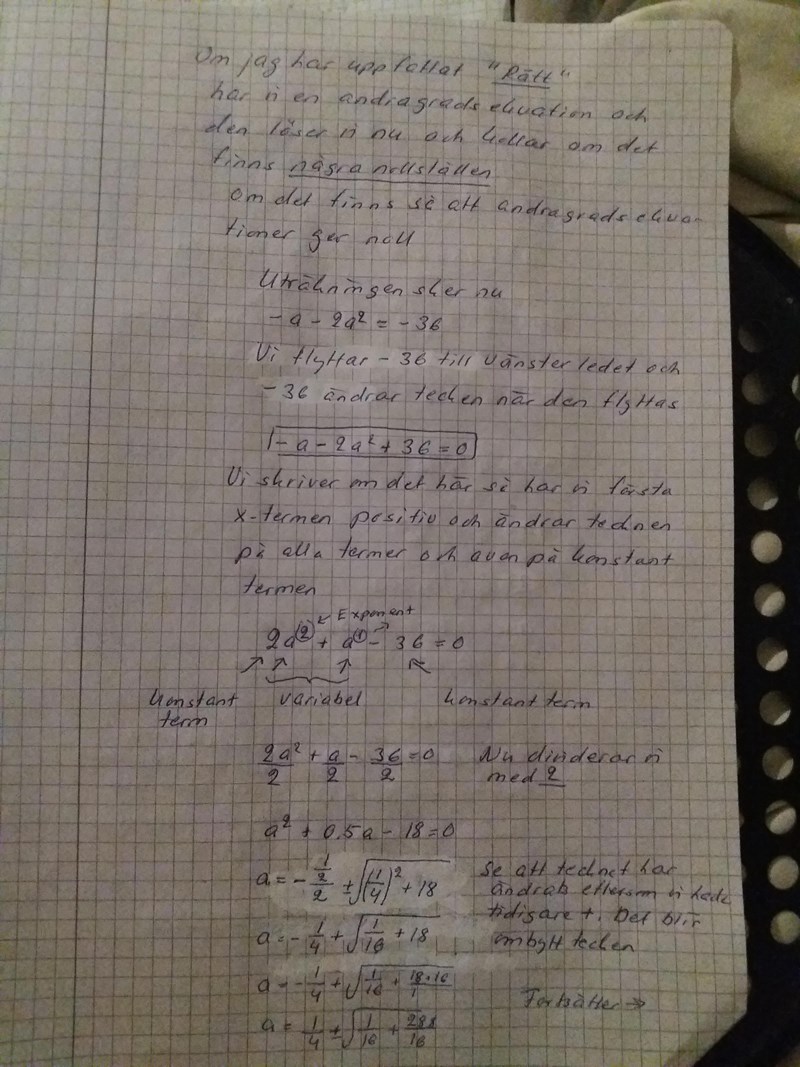 Om jag har uppfattat "Rätt"
har vi en andragrads ekvation och
den löser vi nu och kollar om det
finns några nollställen
om det finns så att andragrads ekva-
tioner ger noll
Uträkningen sker nu
-a - 2a² = -36
Vi flyttar - 36 till vänster ledet och
-36 ändrar tecken när den flyttas
-a - 2a² + 36 = 0
Vi skriver om det här så har vi första
x-termen positiv och ändrar tecknen
på alla termer och även på konstant
termen
Exponent
2a² + a¹ - 36 = 0
konstant variabel konstant term
term
2a²/2 + a/2 - 36/2 = 0 Nu dividerar vi
med 2
a² + 0,5a - 18 = 0
a = - 1/2/2 ± √(1/4)² + 18 Se att tecknet har
ändrab eftersom vi hade
tidigare +. Det blir
a = - 1/4 + √1/16 + 18 ombytt tecken
a = - 1/4 ± √1/16 + 18·16/1
Fortsätter →
a = 1/4 ± √1/16 + 288/16